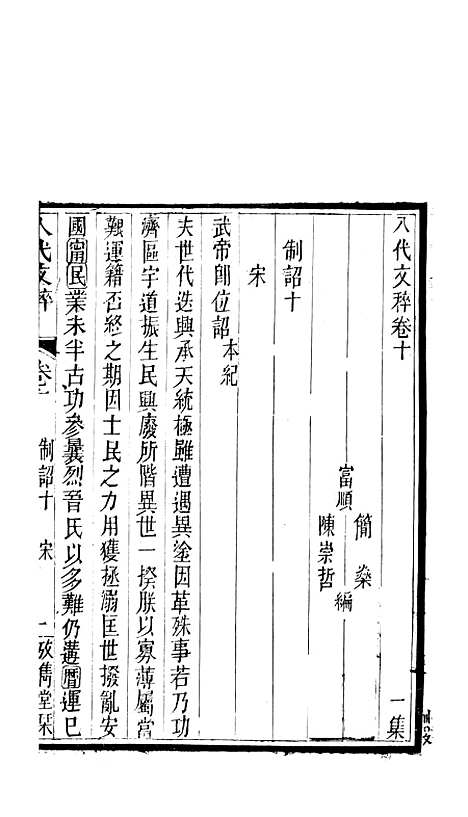 八代文稡卷十
一集
富順
簡燊
陳崇哲
編
制詔十
宋
武帝卽位詔本紀
夫世代迭興承天統極雖遭遇異塗因革殊事若乃功
濟區宇道振生民興廢所階異世一揆朕以寡薄屬當
艱運籍否終之期因士民之力用獲拯溺匡世撥亂安
國甯民業未半古功參曩烈晉氏以多難仍遘曆運已
八代文稡
卷十
制詔十
宋
一
攷雋堂栞